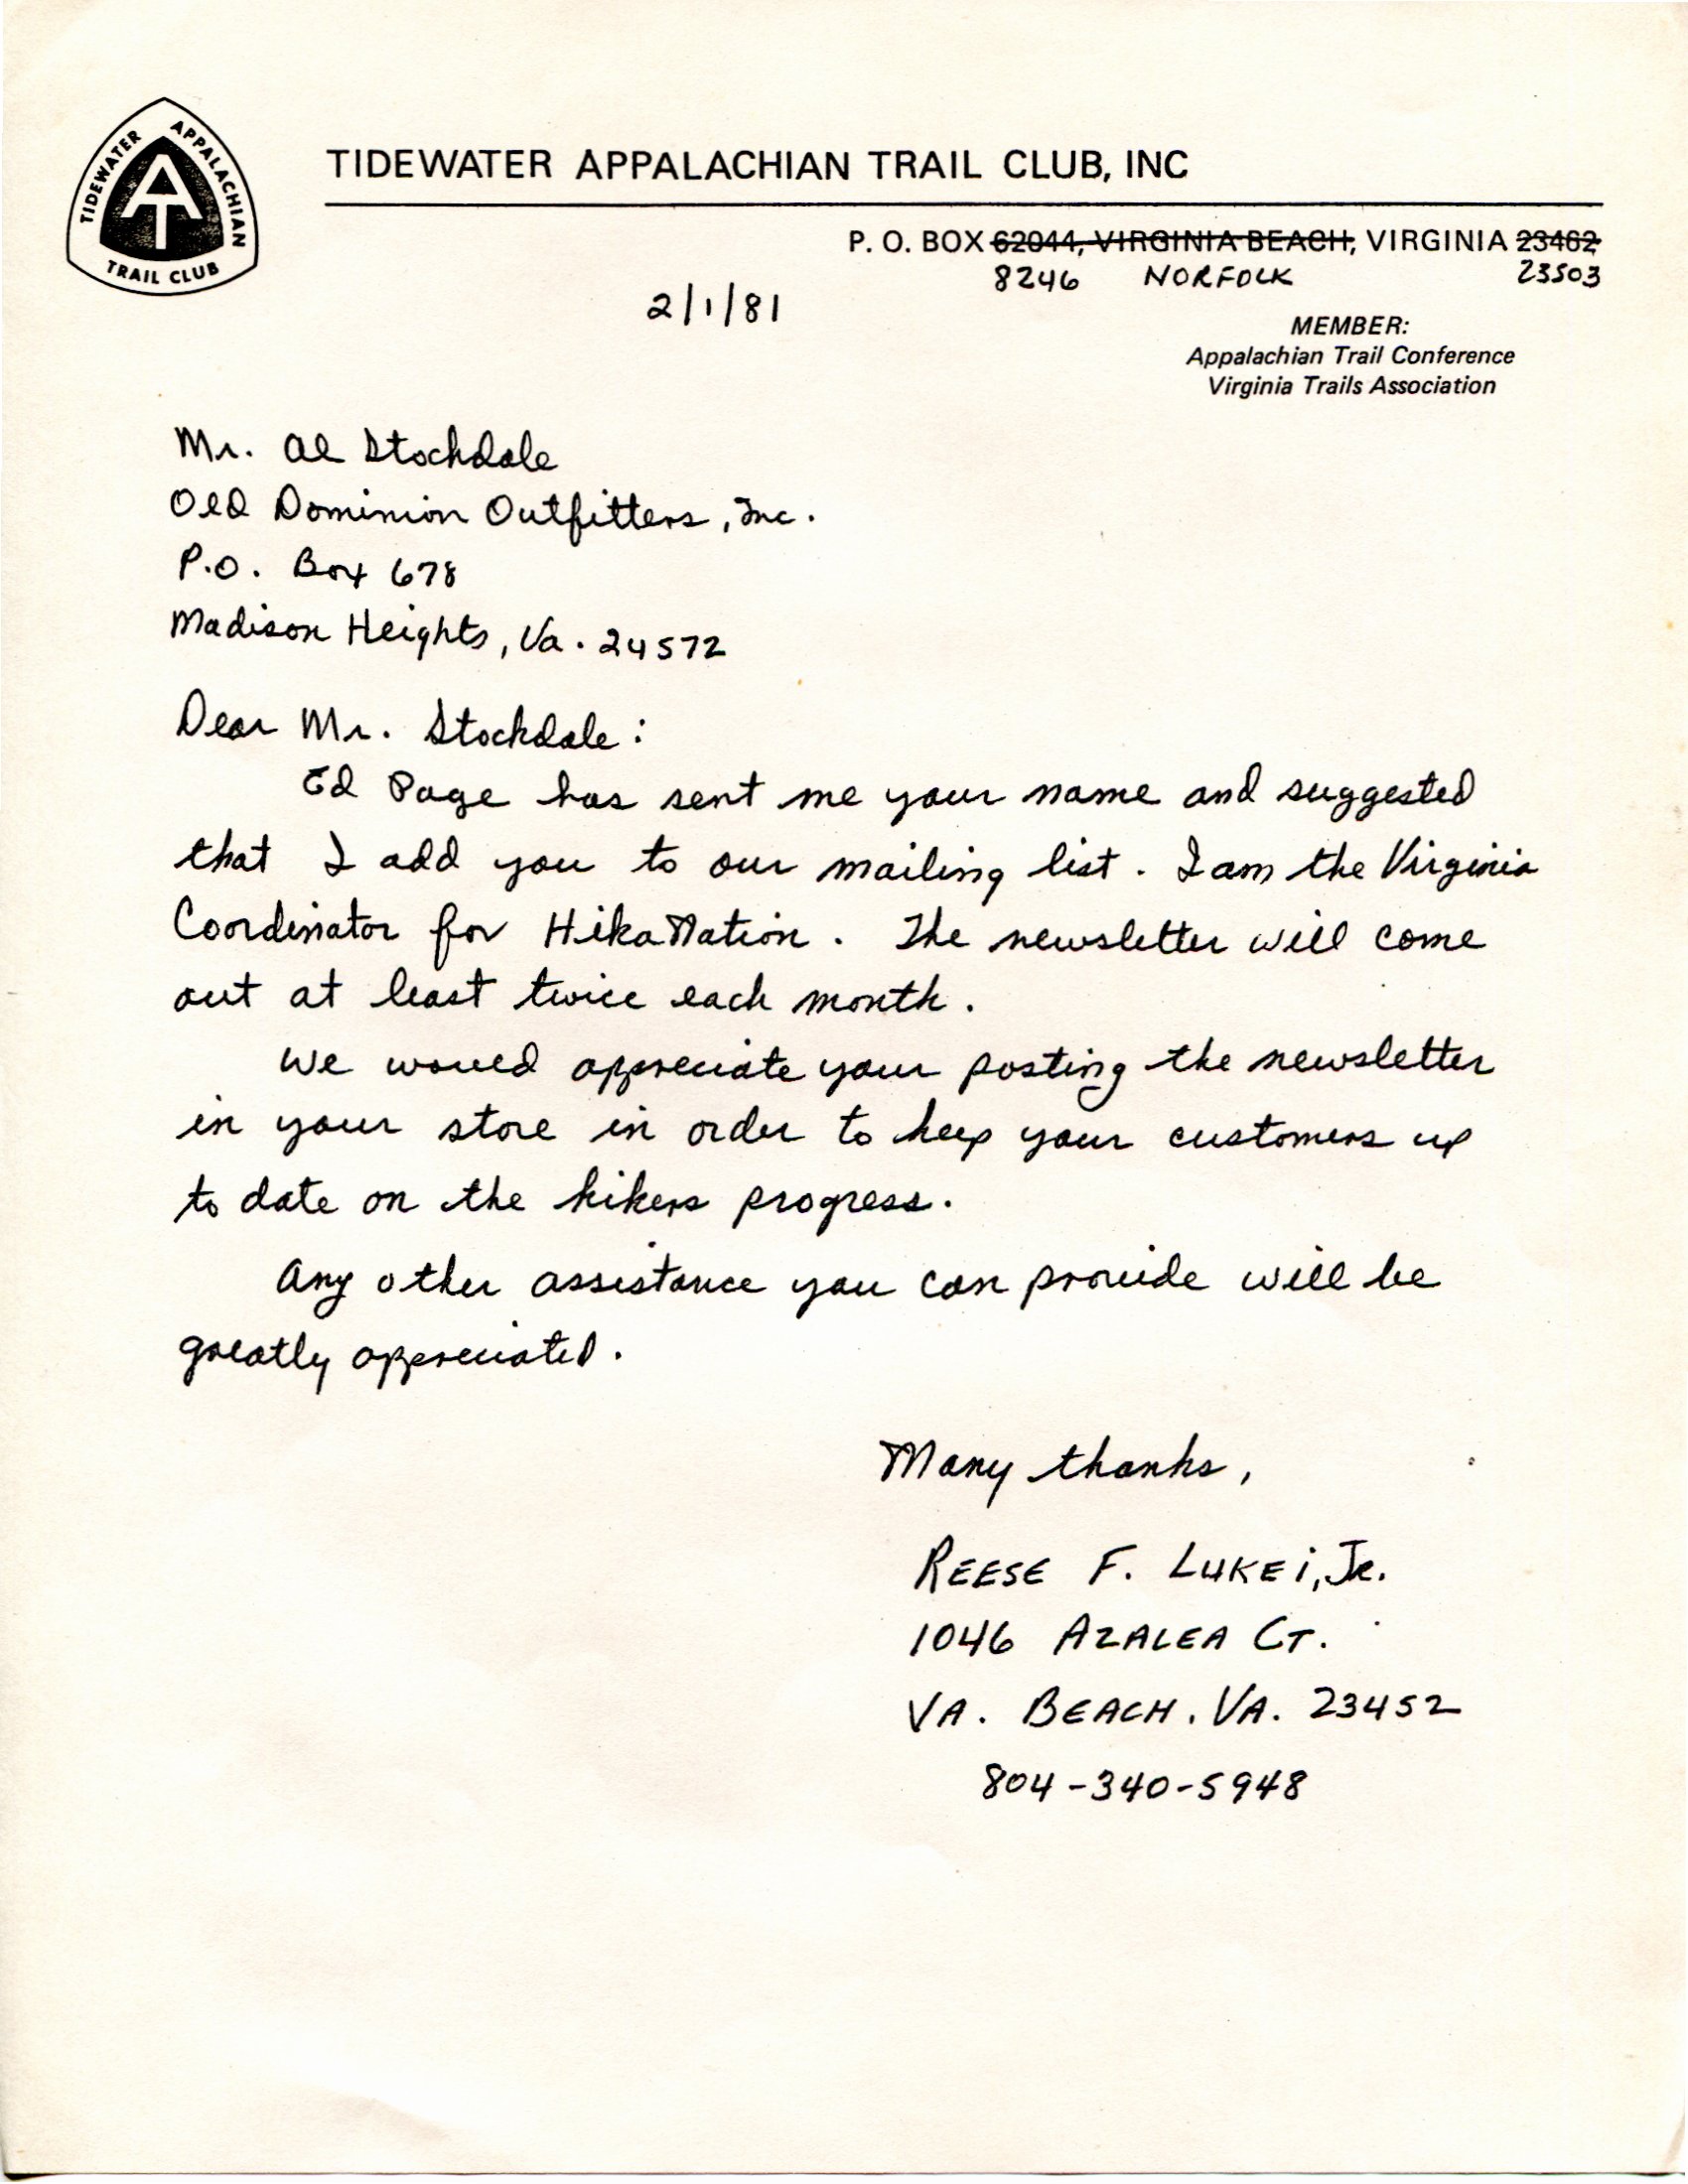 TIDEWATER APPALACHIAN TRAIL CLUB
AT
TIDEWATER APPALACHIAN TRAIL CLUB, INC
P. O. BOX 62044, VIRGINIA BEACH, VIRGINIA 23462
8246 NORFOLK 23503
2/1/81
MEMBER:
Appalachian Trail Conference
Virginia Trails Association
Mr. Al Stockdale
Old Dominion Outfitters, Inc.
P.O. Box 678
Madison Heights, Va. 24572
Dear Mr. Stockdale:
Ed Page has sent me your name and suggested
that I add you to our mailing list. I am the Virginia
Coordinator for HikaNation. The newsletter will come
out at least twice each month.
We would appreciate your posting the newsletter
in your store in order to keep your customers up
to date on the hikers progress.
Any other assistance you can provide will be
greatly appreciated.
Many thanks,
REESE F. LUKEi, JR.
1046 AZALEA CT.
VA. BEACH, VA. 23452
804-340-5948